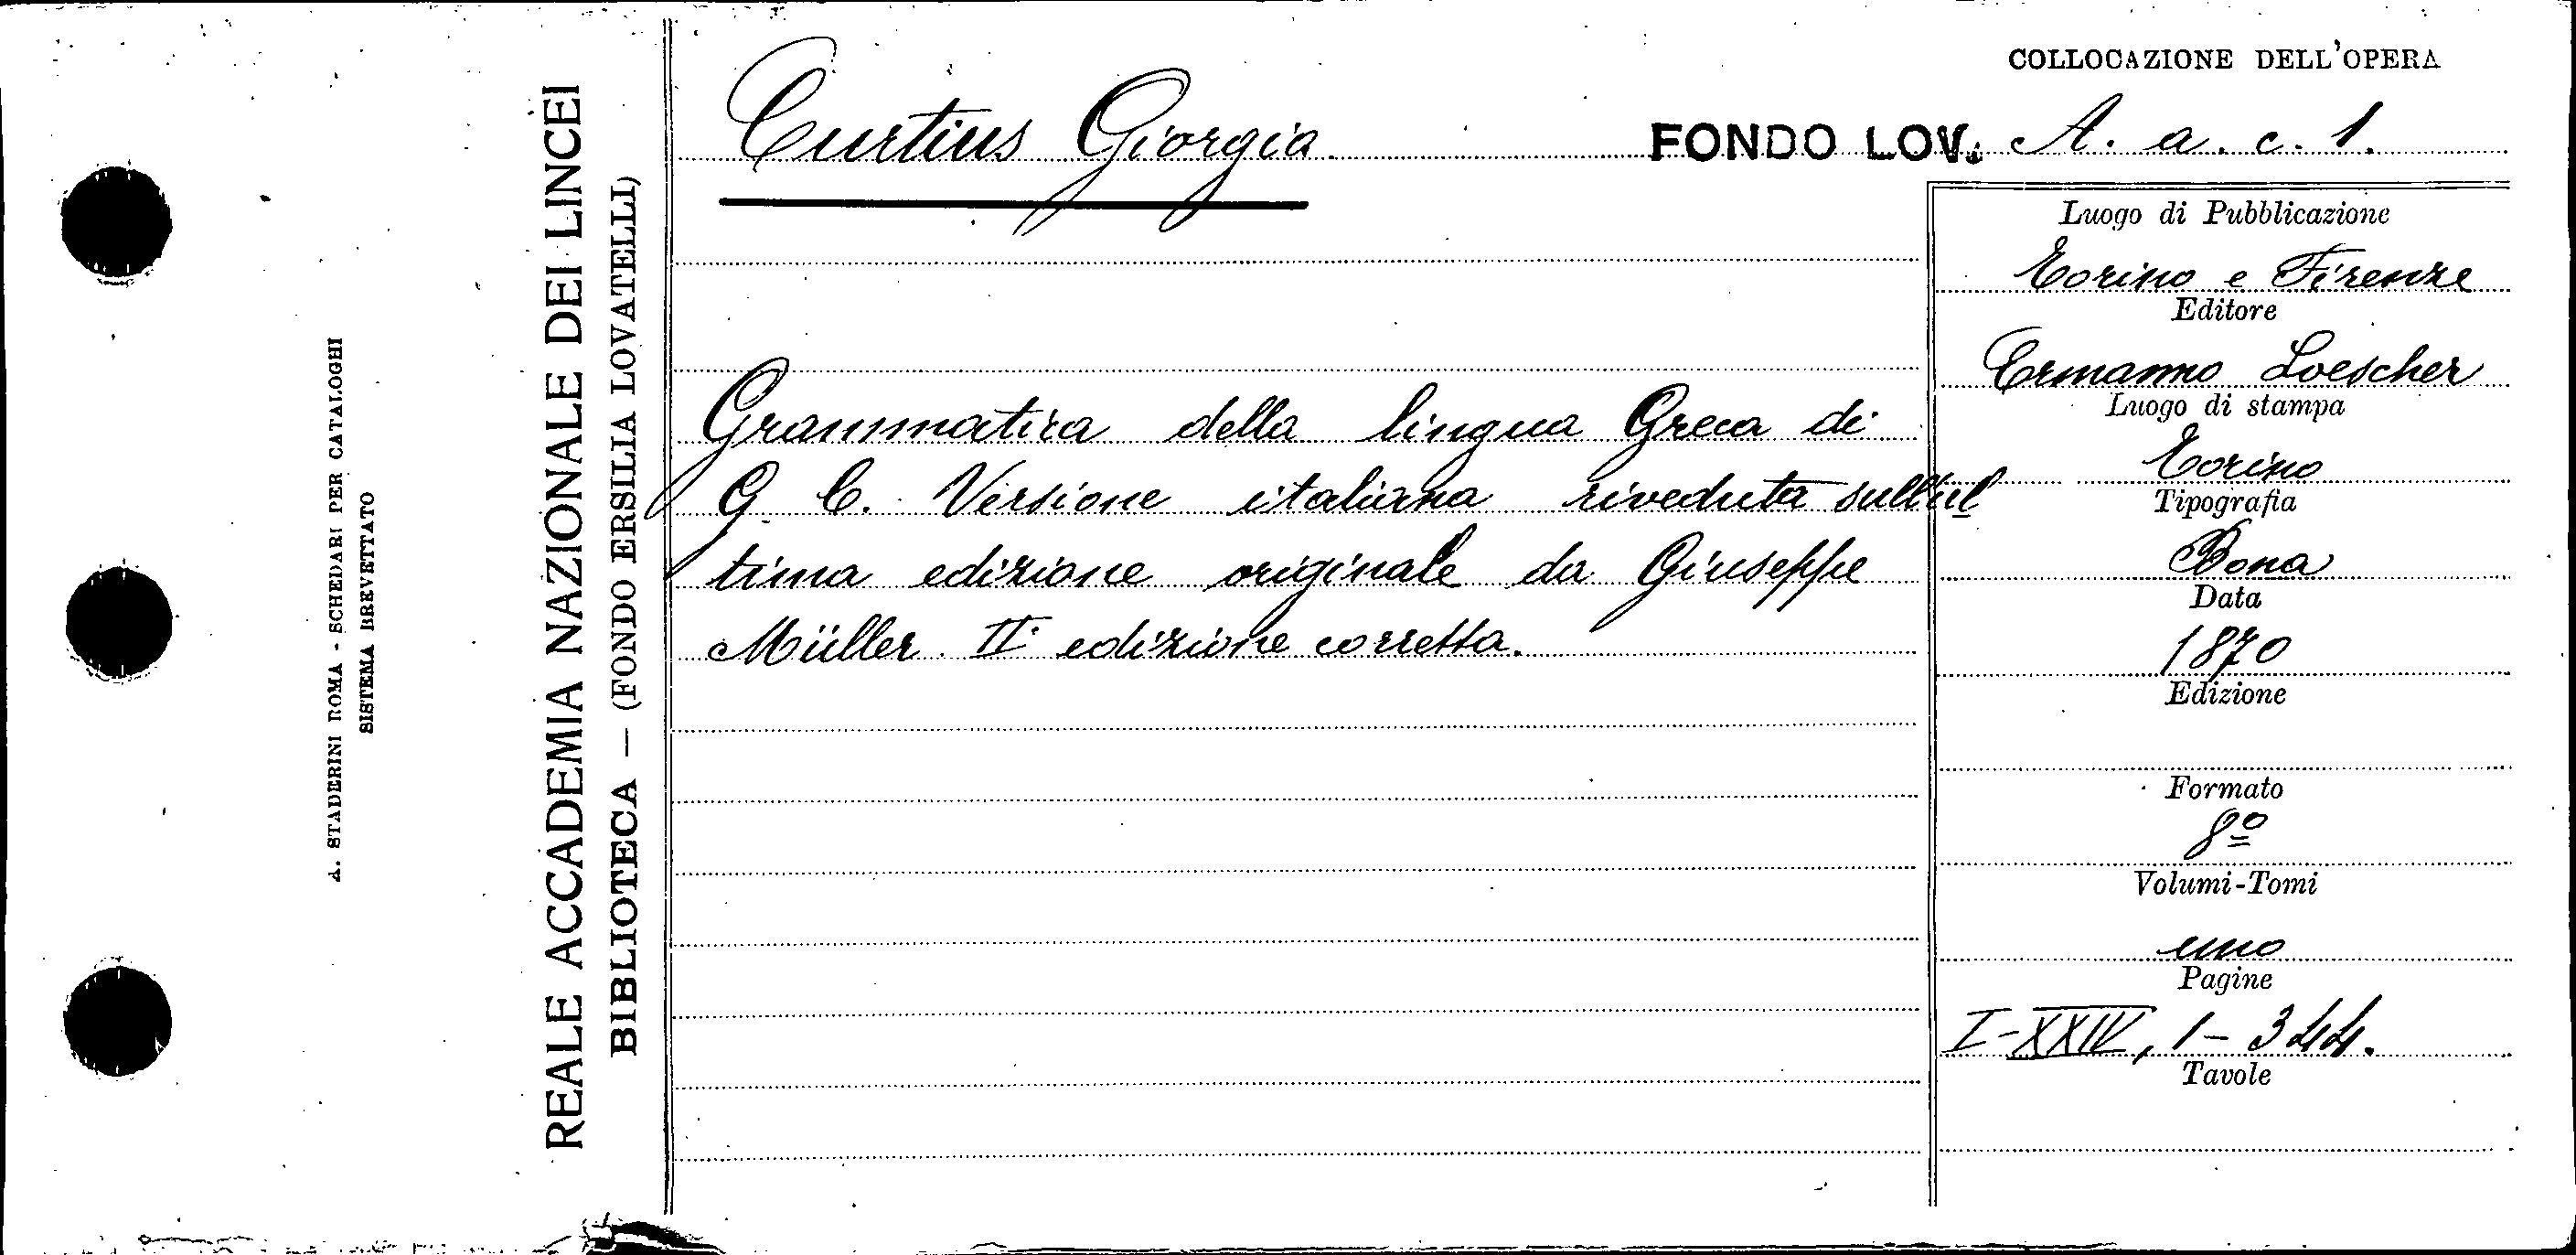 A. STADERINI ROMA - SCHEDARI PER CATALOGHI
SISTEMA BREVETTATO
REALE ACCADEMIA NAZIONALE DEI LINCEI
BIBLIOTECA — (FONDO ERSILIA LOVATELLI)
Curtius Giorgia
COLLOCAZIONE DELL'OPERA
FONDO LOV. A. a. c. 1.
Grammatica della lingua Greca di
G. C. Versione italiana riveduta sull'ul
tima edizione originale da Giuseppe
Müller. II edizione corretta.
Luogo di Pubblicazione
Torino e Firenze
Editore
Ermanno Loescher
Luogo di stampa
Torino
Tipografia
Bona
Data
1870
Edizione
Formato
8º
Volumi-Tomi
uno
Pagine
I-XXIV, 1-344.
Tavole